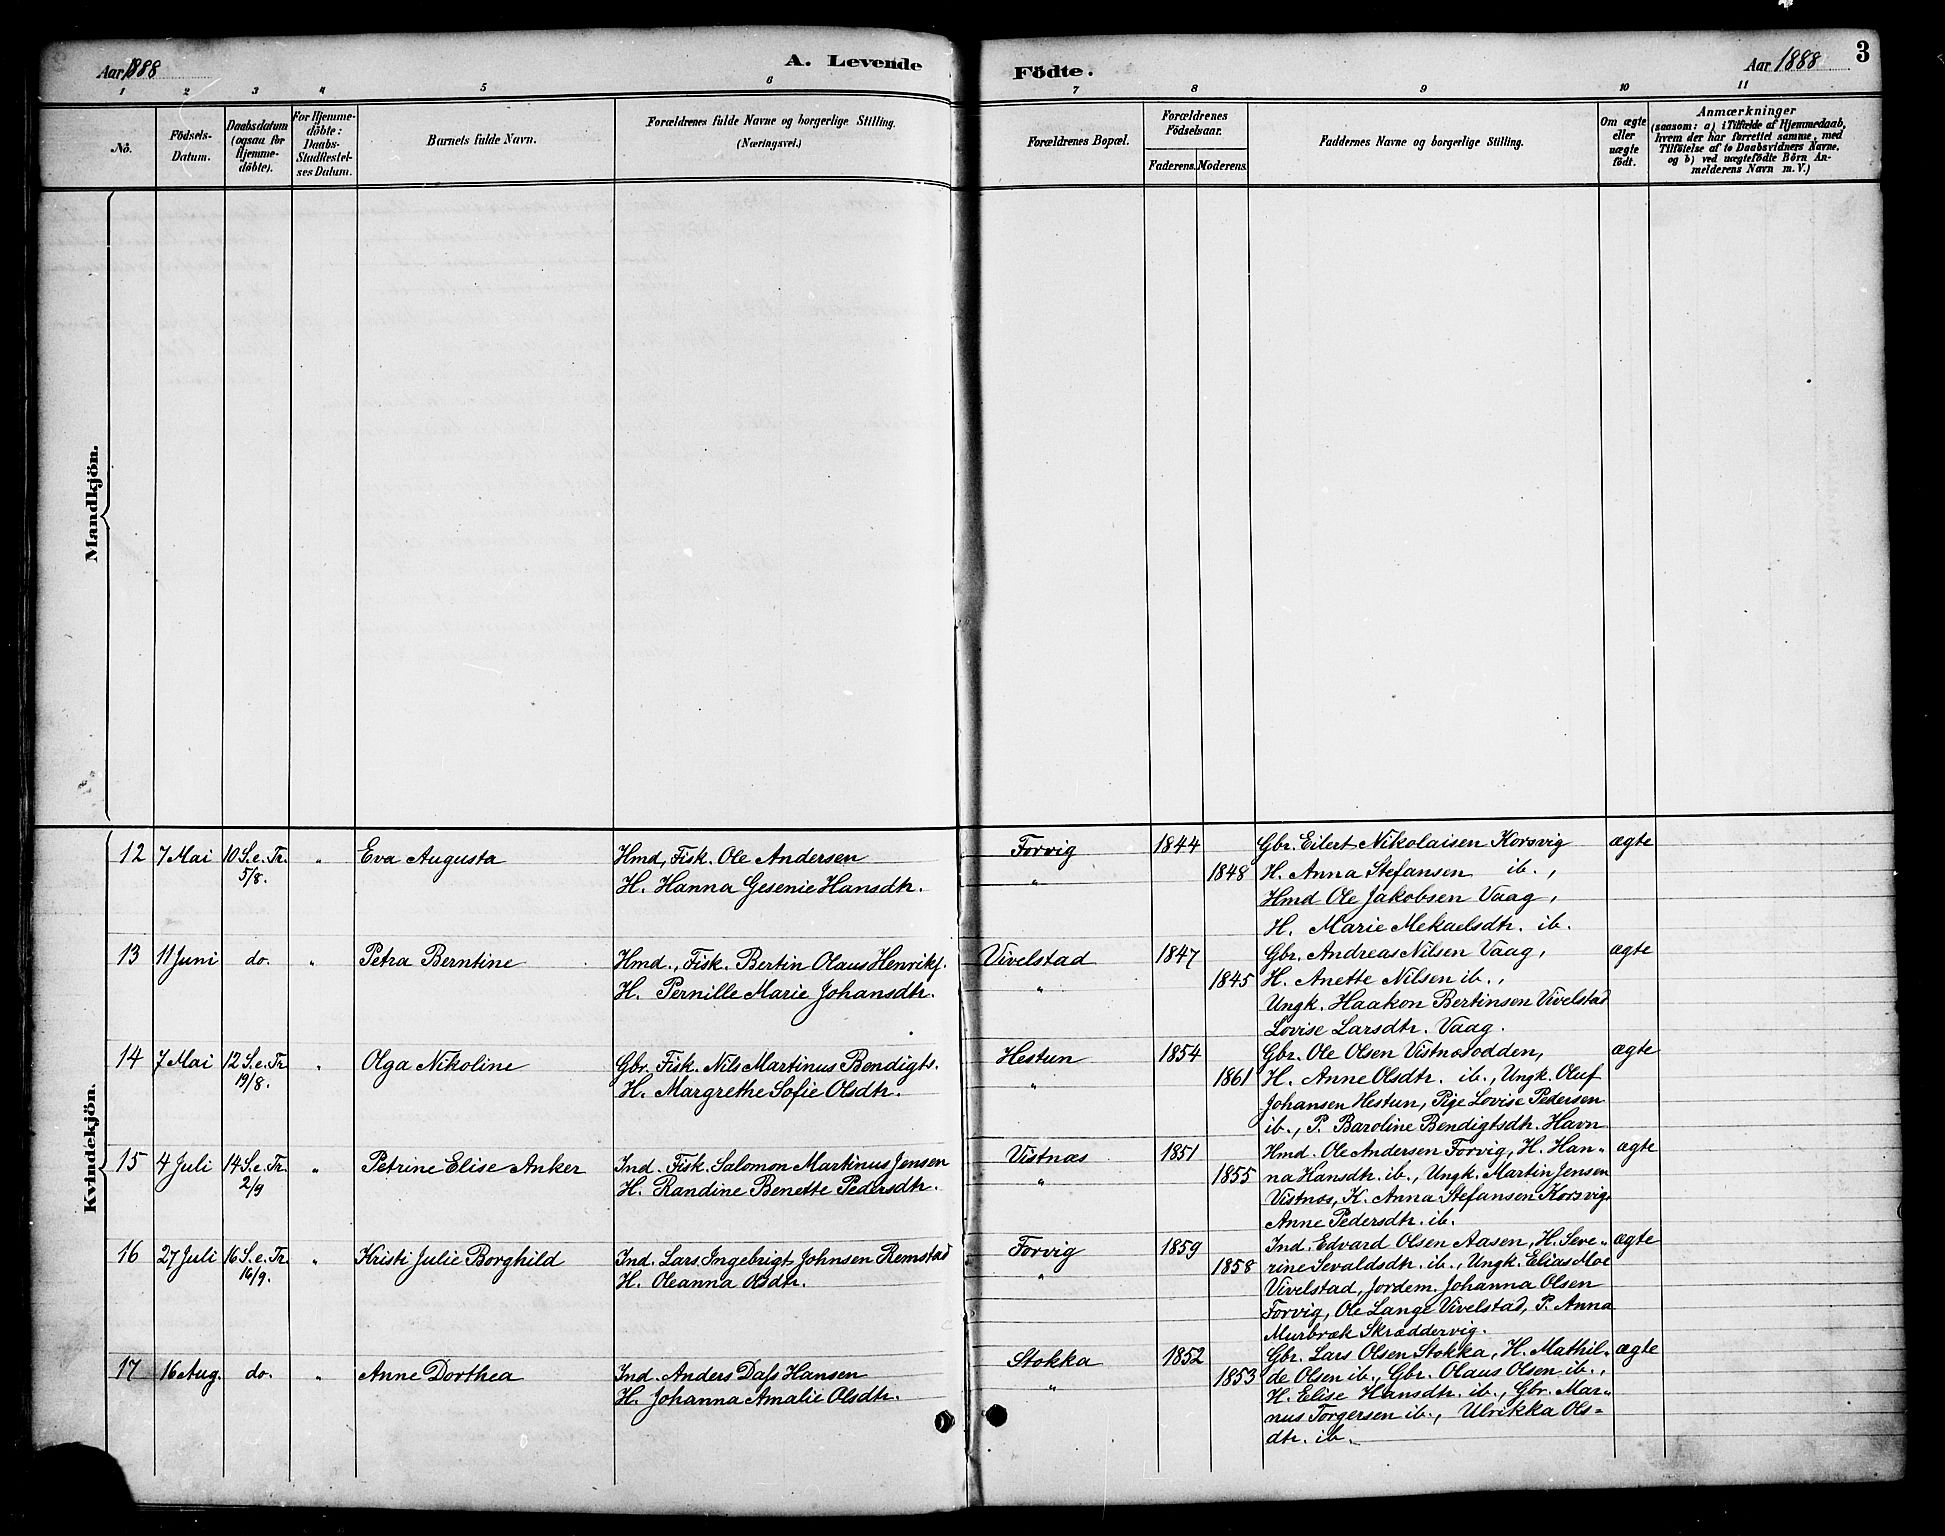 Aar 1888 A. Levende Födte. Aar 1888 3
1 2 3 4 5 6 7 8 9 10 11
No.
Födsels-
Datum.
Daabsdatum
(ogsaa for
Hjemme-
döbte).
For Hjemme-
döbte:
Daabs-
Stadfæstel-
ses Datum.
Barnets fulde Navn.
Forældrenes fulde Navne og borgerlige Stilling.
(Næringsvei.)
Forældrenes Bopæl.
Forældrenes
Födselsaar.
Faderens. Moderens.
Faddernes Navne og borgerlige Stilling.
Om ægte
eller
uægte
födt.
Anmærkninger
(saasom: a) i Tilfælde af Hjemmedaab,
hvem der har forrettet samme, med
Tilföielse af to Daabsvidners Navne,
og b) ved uægtefödte Börn An-
melderens Navn m. V.)
Mandkjön.
Kvindekjön.
12 7 Mai 10 S. e. Tr. " Eva Augusta Hmd, Fisk. Ole Andersen Forvig 1844 Gbr. Eilert Nikolaisen Korsvig ægte
5/8. H. Hanna Gesenie Hansdtr. " 1848 H. Anna Stefansen ib.,
Hmd Ole Jakobsen Vaag,
H. Marie Mekaelsdtr. ib.
13 11 Juni do. " Petra Berntine Hmd., Fisk. Bertin Olaus Henriks. Vivelstad 1847 Gbr. Andreas Nilsen Vaag, ægte
H. Pernille Marie Johansdtr. " 1845 H. Anette Nilsen ib.,
Ungk. Haakon Bertinsen Vivelstad
Lovise Larsdtr. Vaag.
14 7 Mai 12 S. e. Tr " Olga Nikoline Gbr. Fisk. Nils Martinus Bendigts. Hestun 1854 Gbr. Ole Olsen Vistnesodden, ægte
19/8. H. Margrethe Sofie Olsdtr. " 1861 H. Anne Olsdtr. ib., Ungk. Oluf
Johansen Hestun, Pige Lovise Pedersen
ib., P. Baroline Bendigtsdtr. Havn
15 4 Juli 14 S. e. Tr. " Petrine Elise Anker Ind. Fisk. Salomon Martinus Jensen Vistnæs 1851 Hmd. Ole Andersen Forvig, H. Han- ægte
2/9 H. Randine Benette Pedersdtr. " 1855 na Hansdtr. ib., Ungk. Martin Jensen
Vistnæs, K. Anna Stefansen Korsvig
Anne Pedersdtr. ib.
16 27 Juli 16 S. e. Tr. " Kristi Julie Borghild Ind. Lars Ingebrigt Johnsen Remstad Forvig 1859 Ind. Edvard Olsen Aasen, H. Seve- ægte
16/9. H. Oleanna Olsdtr. " 1858 rine Sevaldsdtr. ib., Ungk. Elias Moe
Vivelstad, Jordem. Johanna Olsen
Forvig, Ole Lange Vivelstad, P. Anna
Murbræk Skræddervig.
17 16 Aug. do. " Anne Dorthea Ind. Anders Dass Hansen Stokka 1852 Gbr. Lars Olsen Stokka, H. Mathil- ægte
H. Johanna Amalie Olsdtr. " 1853 de Olsen ib., Gbr. Olaus Olsen ib.,
H. Elise Hansdtr. ib., Gbr. Mar-
nus Torgersen ib., Ulrikka Ols-
dtr. ib.